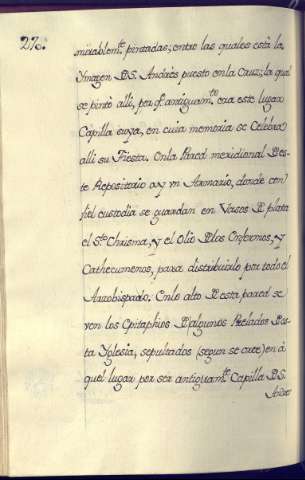 276.
mirablem.te pintadas; entre las quales està la
Ymagen D S. Andrès puesto en la Cruz; la qual
se pintò alli, por q.e antiguam.te era este lugar
Capilla suya, en cuia memoria se Celebra
alli su Fiesta. En la Pared meridional Des-
te Repositorio ay vn Armario, donde con
fiel custodia se guardan en Vasos D plata
el S.to Chrisma, y el Olio Dlos Enfermos, y
Cathecumenos, para distribuirlo por todo el
Arzobispado. En lo alto D esta pared se
ven los Epitaphios D algunos Prelados Des-
ta Yglesia, sepultados (segun se cree) en a-
quel lugar por ser antiguam.te Capilla D S.
Andres